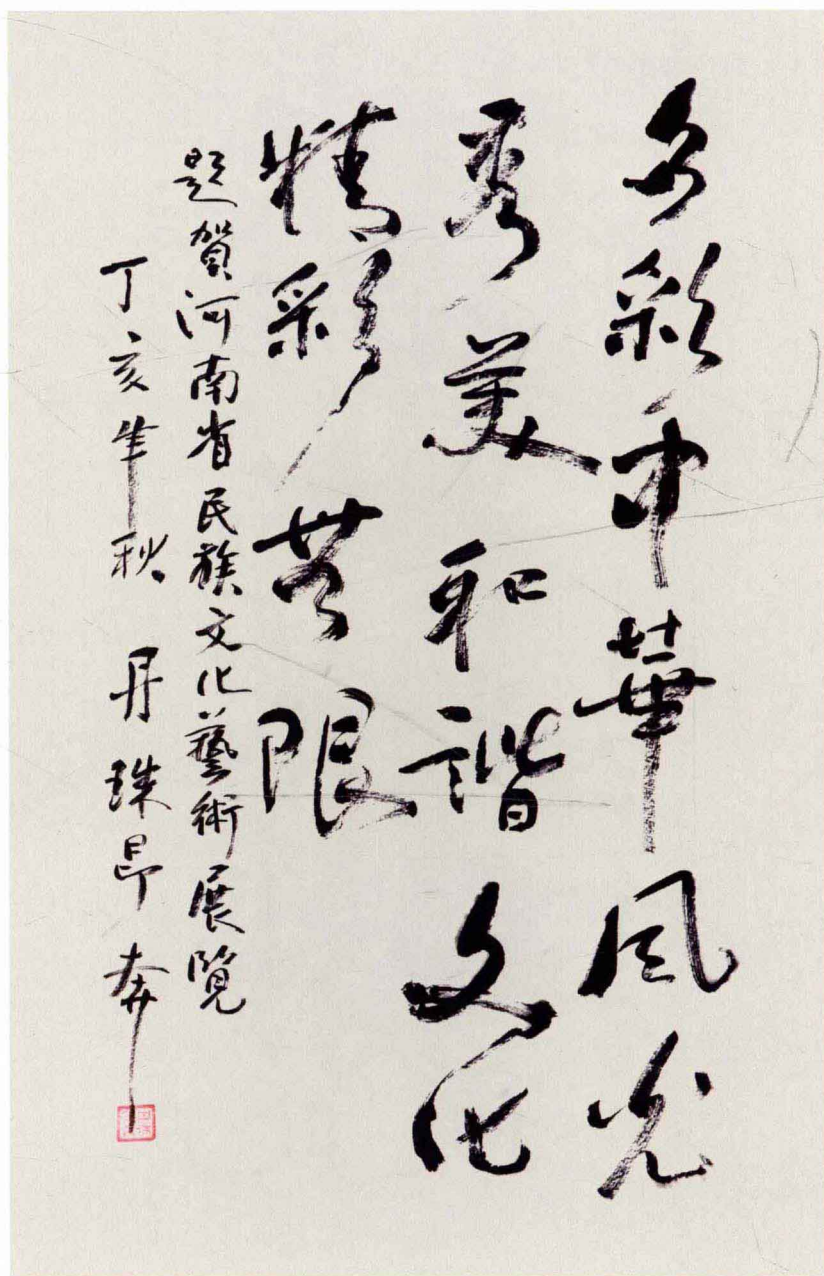 多彩中華風光
秀美和諧文化
精彩無限
題賀河南省民族文化藝術展覽
丁亥年秋 丹珠昂奔